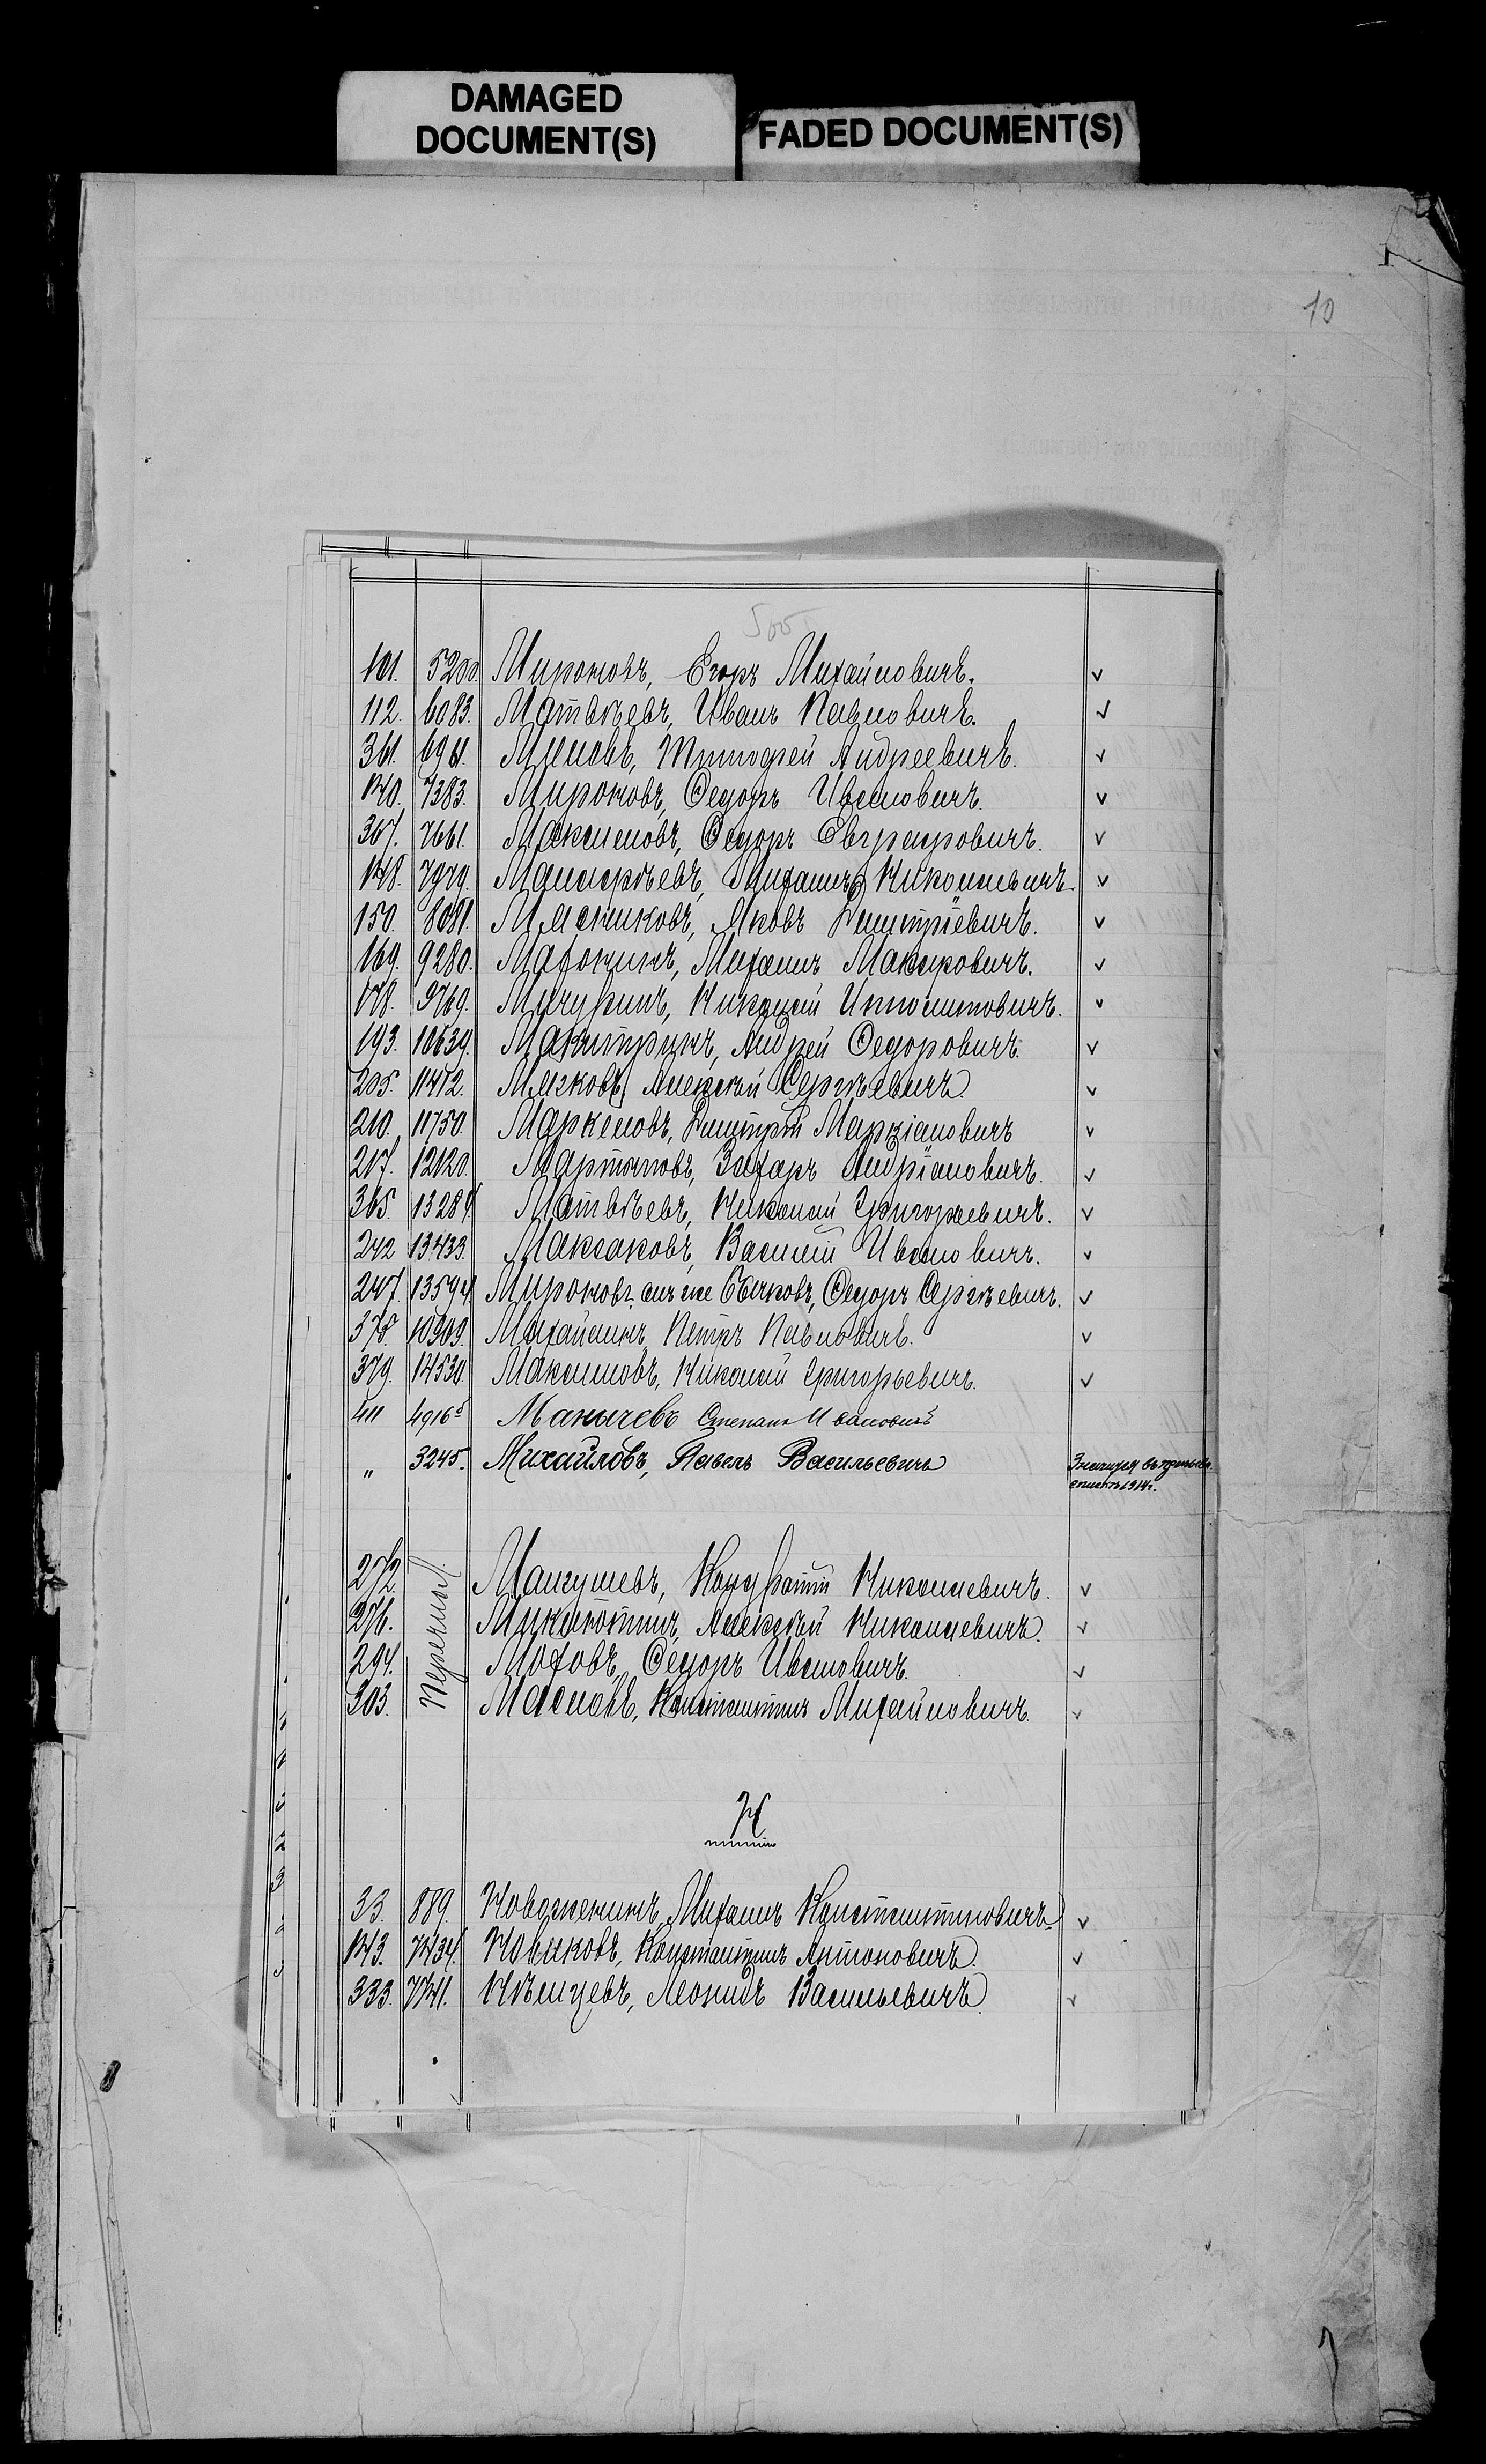 DAMAGED
DOCUMENT(S)
FADED DOCUMENT(S)
10
101. 5200. Мироновъ, Егоръ Михайловичъ. v
112. 6083. Матвѣевъ, Иванъ Павловичъ. v
361. 6961. Тимофей Андреевичъ. v
140. 7383. Мироновъ, Федоръ Ивановичъ. v
367. 7661. Максимовъ, Федоръ Евграфовичъ. v
148. 7979. Михаилъ Николаевичъ. v
150. 8081. Мясниковъ, Яковъ Дмитріевичъ. v
169. 9280. Махонинъ, Михаилъ Макаровичъ. v
178. 9769. Мичуринъ, Николай Ипполитовичъ. v
193. 10639. Макитринъ, Андрей Федоровичъ. v
205. 11412. Мязковъ, Алексѣй Сергѣевичъ. v
210. 11750. Маркеловъ, Дмитрій Маркіановичъ v
217. 12120. Мартыновъ, Захаръ Андріановичъ. v
365. 13284. Матвѣевъ, Николай Григорьевичъ. v
242 13433. Максаковъ, Василій Ивановичъ. v
247. 13594. Мироновъ, онъ же Бычковъ, Федоръ Сергѣевичъ. v
375. 10909. Михайлинъ, Петръ Павловичъ. v
379. 14530. Максимовъ, Николай Григорьевичъ. v
411 4916⁵ Манычевъ Степанъ Ивановичъ
" 3245. Михайловъ, Павелъ Васильевичъ Значится въ
1914г.
272. Мангушевъ, Кондратій Николаевичъ. v
276. Микитинъ, Алексѣй Николаевичъ. v
294. Моховъ, Федоръ Ивановичъ. v
303. Масловъ, Константинъ Михайловичъ. v
Н
33. 889. Новоженинъ, Михаилъ Константиновичъ. v
143. 7434. Новиковъ, Константинъ Антоновичъ. v
333. 7741. Нѣмцевъ, Леонидъ Васильевичъ. v